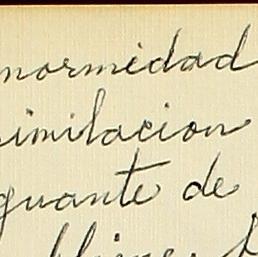 normidad
similacion
guante de